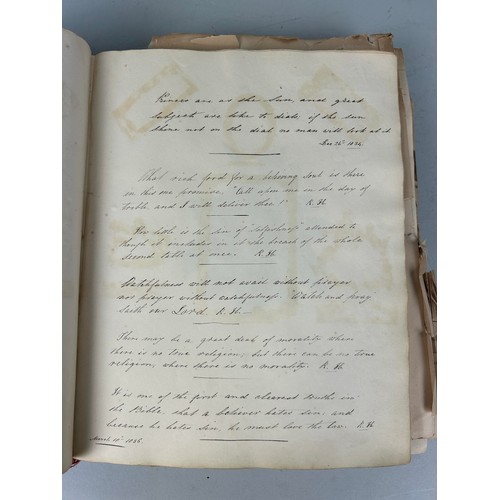 Princes are as the Sun, and great
subjects are like to dials, if the sun
shone not on the dial no man will look at it
Dec 24th 1834.
What rich food for a believing soul is there
in this one promise, "Call upon me in the day of
troble and I will deliver thee!" R. H.
How little is the sin of "selfishness" attended to
though it includes in it the breach of the whole
second table at once. R. H.
Watchfulness will not avail without prayer
nor prayer without watchfulness. "Watch and pray"
saith our Lord. R. H. —
There may be a great deal of morality where
there is no true religion; but there can be no true
religion, where there is no morality. R. H.
It is one of the first and clearest truths in
the Bible, that a believer hates sin; and
because he hates sin, he must love the law. R. H.
March 10th 1835.